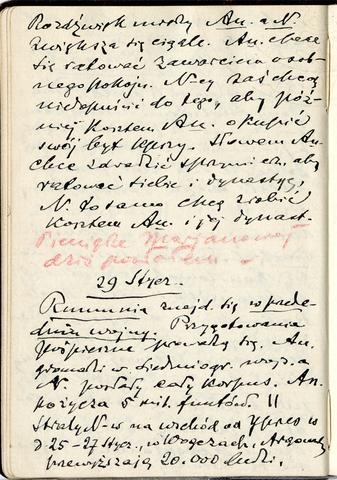 Rozdźwięk między Au. a N.
zwiększa się ciągle. Au. chce
się ratować zawarciem osob-
nego pokoju. N-cy zaś chcą
niedopuścić do tego, aby póź-
niej kosztem Au. okupić
swój byt lepszy. Słowem Au.
chce zdradzić sprzymierz. aby
ratować siebie i dynastyę,
N. to samo chcą zrobić
kosztem Au. i jej dynast.
Pieniądze
dziś posłałem.
29 Stycz.
Rumunia znajd. się w przede-
dniu wojny. Przygotowania
pośpieszne prowadzą się. Au.
gromadzi w Siedmiogr. wojska
N. posłały cały korpus. An.
pożycza 5 mil. funtów. II
Straty N-w na wschód od Ypres w
d. 25-27 Stycz., w Wogezach, Argonnach
przewyższają 20.000 ludzi.